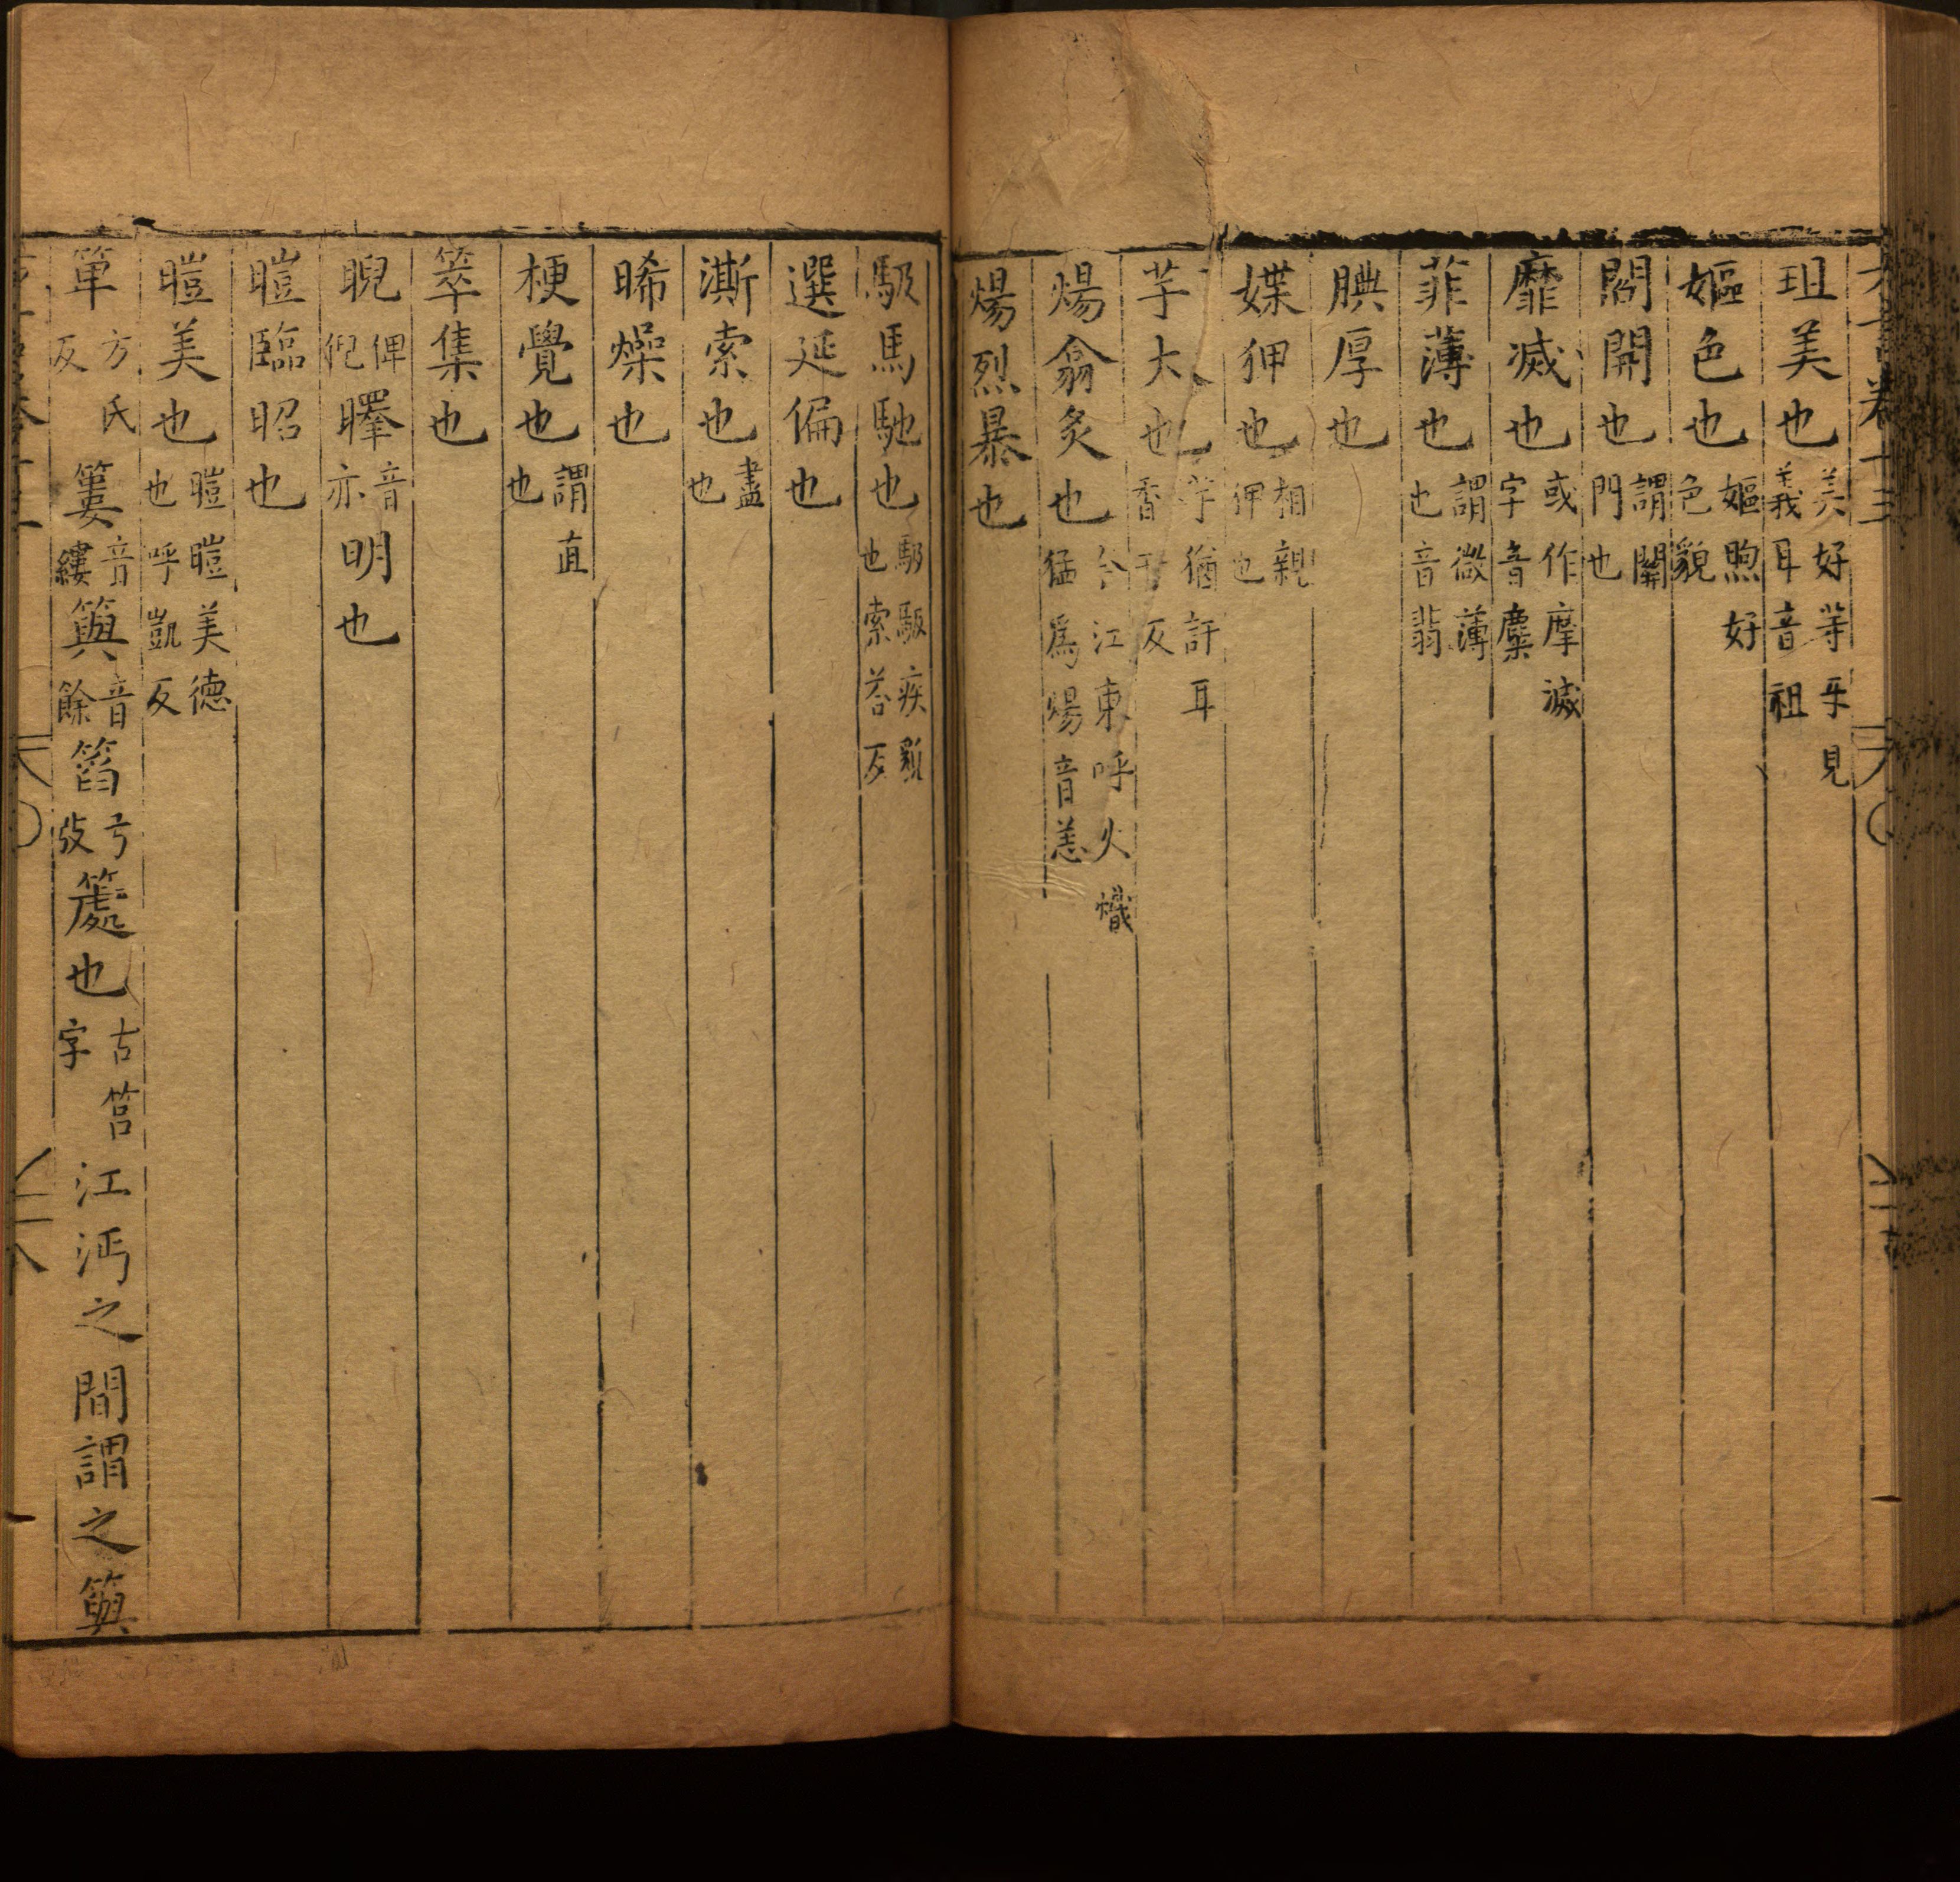 珇美也美好等互見義耳音祖
嫗色也嫗煦好色貌
閻開也謂關門也
靡滅也或作摩滅字音麋
菲薄也謂微薄也音翡
腆厚也
媟狎也相親狎也
芋大也芋猶訏耳香于反
煬翕炙也今江東呼火熾猛為煬音恙
煬烈暴也
馺馬馳也馺馺疾貌也索荅反
選延徧也
澌索也盡也
晞燥也
梗覺也謂直也
萃集也
睨俾倪睪音亦明也
暟臨昭也
暟美也暟暟美德也呼凱反
箄方氏反簍音縷籅音餘筥弓弢䉛也古筥字江沔之間謂之籅